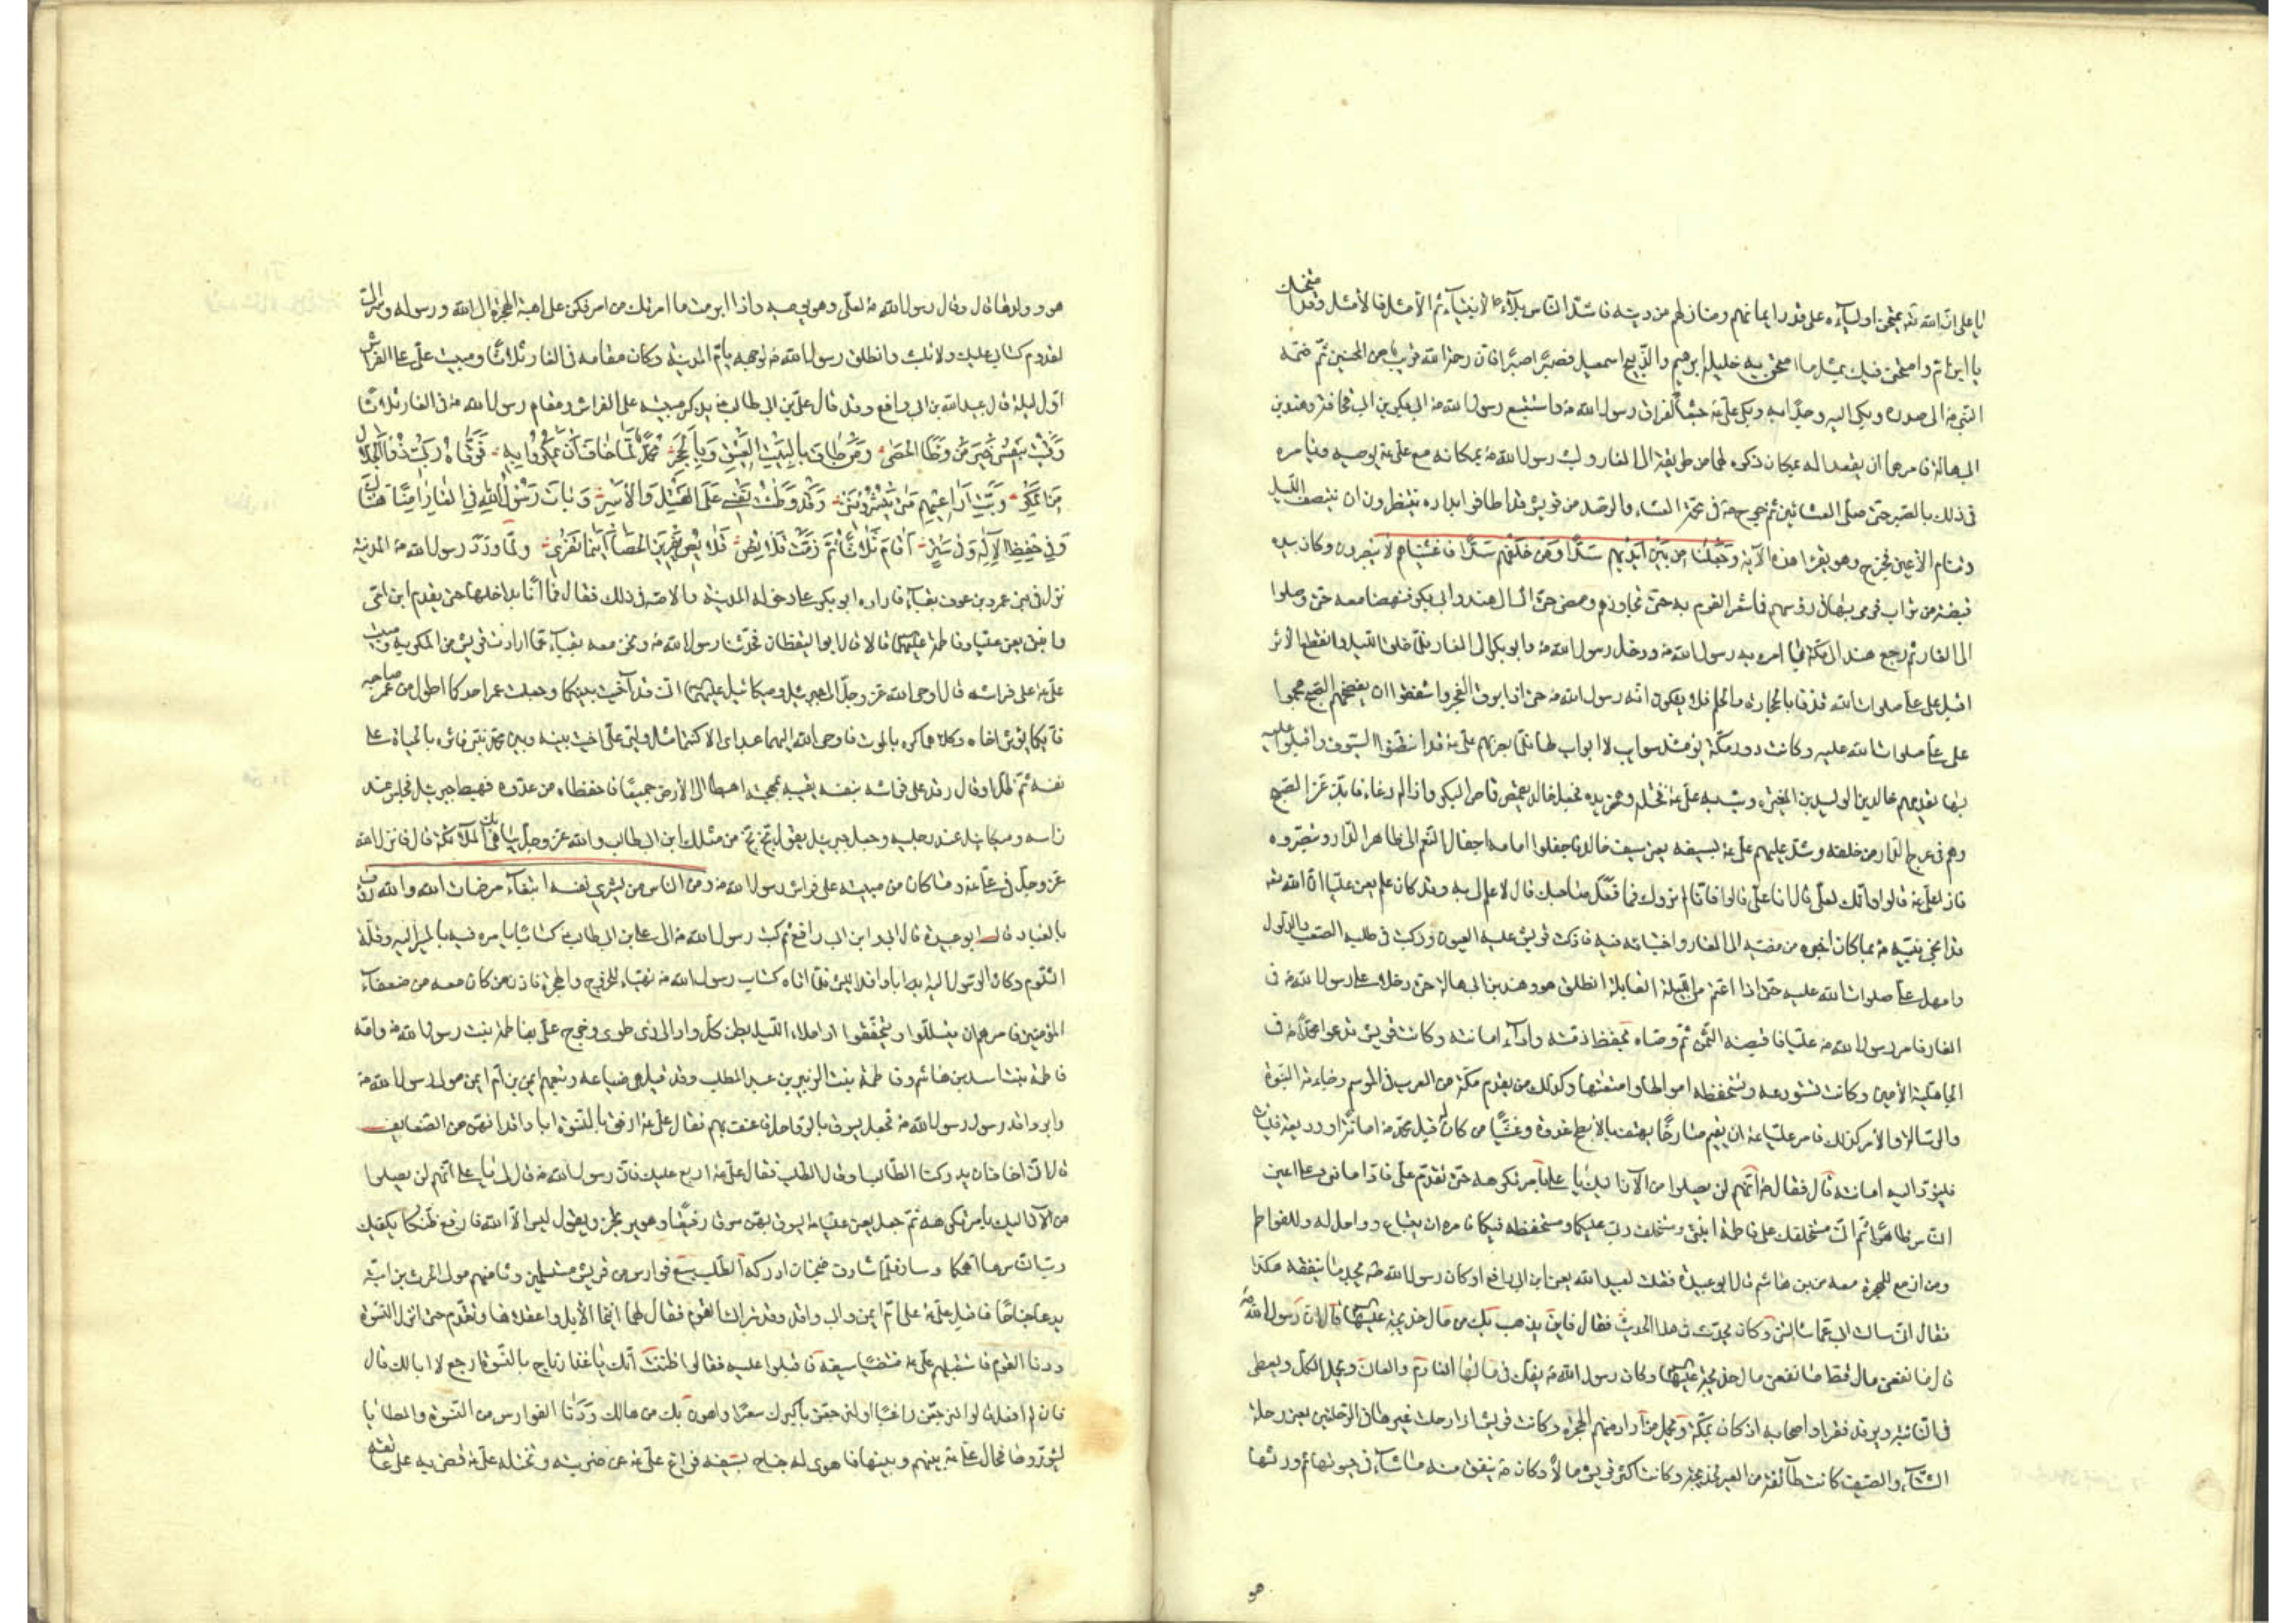 يا علي ان الله تع يمتحن اولياءه على قدر ايمانهم ومنازلهم من دينه فاشد الناس بلاء الانبياء ثم الامثل فالامثل وقد امتحنك
يا ابن ام وامتحن فيك بمثل ما امتحن به خليله ابرهيم والذبيح اسمعيل فصبرا صبرا فان رحمة الله قريب من المحسنين ثم ضمه
النبي ص الى صدره وبكى اليه وجدا به وبكى علي ع جشعا لفراق رسول الله ص واستتبع رسول الله ص ابي بكر بن ابي قحافة وهند بن
ابي هالة فامرهما ان يقعدا له بمكان ذكره لهما من طريقه الى الغار ولبث رسول الله ص بمكانه مع علي ع يوصيه ويامره
في ذلك بالصبر حتى صلى العشائين ثم خرج ص في فحمة العشاء والرصد من قريش قد اطافوا بداره ينتظرون ان ينتصف الليل
وتنام الاعين فخرج وهو يقرا هذه الآية وجعلنا من بين ايديهم سدا ومن خلفهم سدا فاغشيناهم لا يبصرون وكان بيده
قبضة من تراب فرمى بها في رؤسهم فما شعر القوم به حتى تجاوزهم ومضى حتى اتى الى هند وابي بكر فنهضا معه حتى وصلوا
الى الغار ثم رجع هند الى مكة بما امره به رسول الله ص ودخل رسول الله ص وابو بكر الى الغار فلما خلق الليل وانقطع الاثر
اقبل على علي صلوات الله قذفا بالحجارة والحلم فلا يشكون انه رسول الله ص حتى اذا برق الفجر واشفقوا ان يفضحهم الصبح هجموا
على علي صلوات الله عليه وكانت دور مكة يومئذ سوايب لا ابواب لها فلما بصر بهم علي ع قد انتضوا السيوف واقبلوا عليه
بها يقدمهم خالد بن الوليد بن المغيرة وثب به علي ع فختله وهمز يده فجعل خالد يقمص قماص البكر واذا له رغاء فابتز عن الصبح
وهم في عرج الدار من خلفه وشد عليهم علي ع بسيفه يعني سيف خالد فاجفلوا امامه اجفال النعم الى ظاهر الدار وتبصروه
فاذا لعلي ع قالوا وانك لعلي قال انا علي قالوا فانا لم نردك فما فعل صاحبك قال لا علم لي به وقد كان علم يعني عليا ان الله تع
قد انجى نبيه ص بما كان اخبره من مضيه الى الغار واختبائه فيه فاذكت قريش عليه العيون وركبت في طلبه الصعب والذلول
وامهل علي صلوات الله عليه حتى اذا اعتم من الليلة القابلة انطلق هو وهند بن ابي هالة حتى دخلا على رسول الله ص في
الغار فامر رسول الله ص عليا فاقبضه الثمن ثم وصاه بحفظ ذمته واداء امانته وكانت قريش تدعو محمدا ص في
الجاهلية الامين وكانت تستودعه وتستحفظه اموالها وامتعتها وكذلك من يقدم مكة من العرب في الموسم وجاءته النبوة
والرسالة والامر كذلك فامر عليا ع ان يقيم صارخا يهتف بالابطح غدوة وعشيا من كان له قبل محمد ص امانة او وديعة فليات
فليؤد اليه امانته قال فقال ص انهم لن يصلوا من الآن اليك يا علي بامر تكرهه حتى تقدم علي فاد امانتي على اعين
الناس ظاهرا ثم اني مستخلفك على فاطمة ابنتي ومستخلف ربي عليكما ومستحفظه فيكما فامره ان يبتاع رواحل له وللفواطم
ومن ازمع للهجرة معه من بني هاشم قال ابو عبيدة فقلت لعبيد الله يعني ابن ابي رافع او كان رسول الله ص يجد ما ينفقه هكذا
فقال اني سالت ابي عما سالتني وكان يحدث في هذا الحديث فقال فاين يذهب بك من مال خديجة عليها السلام قال ان رسول الله ص
قال ما نفعني مال قط ما نفعني مال خديجة عليها السلام وكان رسول الله ص يفك في مالها الغارم والعاني ويحمل الكل ويعطي
في النائبة ويرفد فقراء اصحابه اذ كان بمكة ويحمل من اراد منهم الهجرة وكانت قريش اذا رحلت عيرها في الرحلتين يعني رحلة
الشتاء والصيف كانت طائفة من العير لخديجة وكانت اكثر قريش مالا وكان ص ينفق منه ما شاء في حيوتها ثم ورثها
هو
هو وولدها قال وقال رسول الله ص لعلي وهو يوصيه واذا ابرمت ما امرتك من امر فكن على اهبة الهجرة الى الله ورسوله وسر الي
لقدوم كتابي عليك ولا تلبث وانطلق رسول الله ص لوجهه يؤم المدينة وكان مقامه في الغار ثلاثا ومبيت علي على الفراش
اول ليلة قال عبيد الله بن ابي رافع وقد قال علي بن ابي طالب ع يذكر مبيته على الفراش ومقام رسول الله ص في الغار ثلاثا
وقيت بنفسي خير من وطئ الحصى ومن طاف بالبيت العتيق وبالحجر محمد لما خاف ان يمكروا به فوقاه ربي ذو الجلال
من المكر وبت اراعيهم متى ينشرونني وقد وطنت نفسي على القتل والاسر وبات رسول الله في الغار امنا هناك
وفي حفظ الاله وفي ستر اقام ثلاثا ثم زمت قلائص قلائص يفرين الحصا اينما تفري ولما ورد رسول الله ص المدينة
نزل في بني عمرو بن عوف بقباء فاراده ابو بكر على دخوله المدينة والاصه في ذلك فقال فما انا بداخلها حتى يقدم ابن امي
وابنتي يعني عليا وفاطمة عليهما السلام قالا قال ابو اليقظان فحدثنا رسول الله ص ونحن معه بقباء عما ارادت قريش من المكر به ومبيت
علي ع على فراشه قال اوحى الله عز وجل الى جبرئيل وميكائيل عليهما السلام اني قد آخيت بينكما وجعلت عمر احدكما اطول من عمر صاحبه
فايكما يؤثر اخاه وكلاهما كره الموت فاوحى الله اليهما عبداي الا كنتما مثل وليي علي اخيت بينه وبين محمد نبيي فاثره بالحياة على
نفسه ثم ظل او قال رقد على فراشه بنفسه يقيه بمهجته اهبطا الى الارض جميعا فاحفظاه من عدوه فهبط جبرئيل فجلس عند
راسه وميكائيل عند رجليه وجعل جبرئيل يقول بخ بخ من مثلك يا ابن ابي طالب والله عز وجل يباهي بك الملائكة قال فانزل الله
عز وجل في علي ع وما كان من مبيته على فراش رسول الله ص ومن الناس من يشري نفسه ابتغاء مرضات الله والله رؤف
بالعباد قال ابو عبيدة قال ابي وابن ابي رافع ثم كتب رسول الله ص الى علي بن ابي طالب ع كتابا يامره فيه بالمسير اليه وقلة
التلوم وكان الرسول اليه ابا واقد الليثي فلما اتاه كتاب رسول الله ص تهيا للخروج والهجرة فاذن من كان معه من ضعفاء
المؤمنين فامرهم ان يتسللوا ويتخففوا اذا ملا الليل بطن كل واد الى ذي طوى وخرج علي ع بفاطمة بنت رسول الله ص وامه
فاطمة بنت اسد بن هاشم وفاطمة بنت الزبير بن عبد المطلب وقد قيل هي ضباعة وتبعهم ايمن بن ام ايمن مولى رسول الله ص
وابو واقد رسول رسول الله ص فجعل يسوق بالرواحل فاعنف بهم فقال علي ع ارفق بالنسوة ابا واقد انهن من الضعايف
قال اني اخاف ان يدركنا الطالب او قال الطلب فقال علي ع اربع عليك فان رسول الله ص قال لي يا علي انهم لن يصلوا
من الآن اليك بامر تكرهه ثم جعل يعني عليا ع يسوق بهن سوقا رفيقا وهو يرتجز ويقول ليس الا الله فارفع ظنكا يكفيك
رب الناس ما اهمكا وسار فلما شارف ضجنان ادركه الطلب سبع فوارس من قريش مستلئمين وثامنهم مولى الحرث بن امية
يدعا جناحا فاقبل علي ع على ايمن وابي واقد وقد تراءى القوم فقال لهما انيخا الابل واعقلاها وتقدم حتى انزل النسوة
ودنا القوم فاستقبلهم علي ع منتضيا سيفه فاقبلوا عليه فقالوا ظننت انك يا غدار ناج بالنسوة ارجع لا ابا لك قال
فان لم افعل قالوا لترجعن راغما او لنرجعن باكبرك سعرا واهون بك من هالك ودنا الفوارس من النسوة والمطايا
ليثوروها فحال علي ع بينهم وبينها فاهوى له جناح بسيفه فراغ علي ع عن ضربته وتختله علي ع فضربه على عاتقه